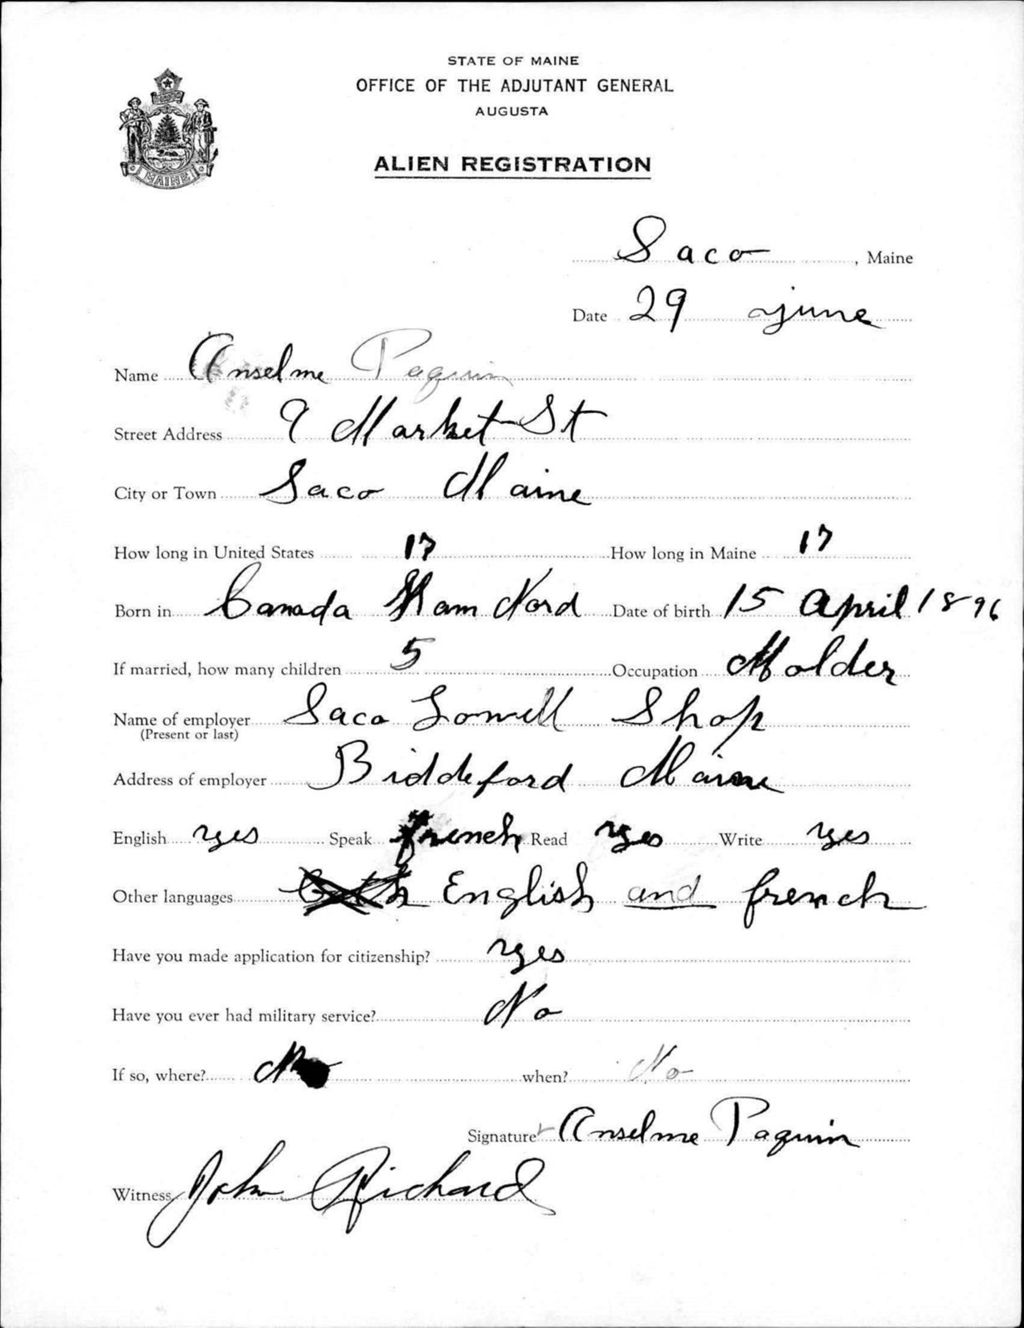 STATE OF MAINE
OFFICE OF THE ADJUTANT GENERAL
AUGUSTA
ALIEN REGISTRATION
MAINE
Saco, Maine
Date 29 june
Name Anselme Paquin
Street Address 9 Market St
City or Town Saco Maine
How long in United States 17 How long in Maine 17
Born in Canada Ham Nord Date of birth 15 April 1896
If married, how many children 5 Occupation Molder
Name of employer Saco Lowell Shop
(Present or last)
Address of employer Biddeford Maine
English yes Speak french Read yes Write yes
Other languages English and french
Have you made application for citizenship? yes
Have you ever had military service? No
If so, where? No when? No
Signature Anselme Paquin
Witness John Richard